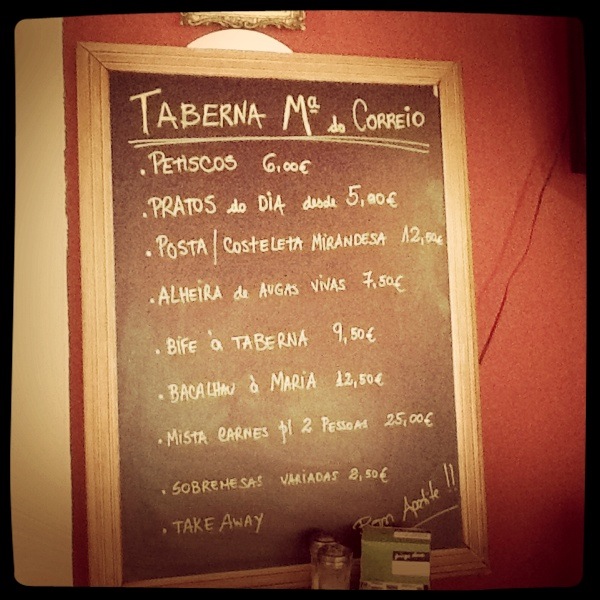 TABERNA Mª do CORREIO
. PETISCOS 6,00€
. PRATOS do DIA desde 5,00€
. POSTA/COSTELETA MIRANDESA 12,50€
. ALHEIRA de AUGAS VIVAS 7,50€
. BIFE à TABERNA 9,50€
. BACALHAU à MARIA 12,50€
. MISTA CARNES p/ 2 PESSOAS 25,00€
. SOBREMESAS VARIADAS 2,50€
. TAKE AWAY
Bom Apetite!!